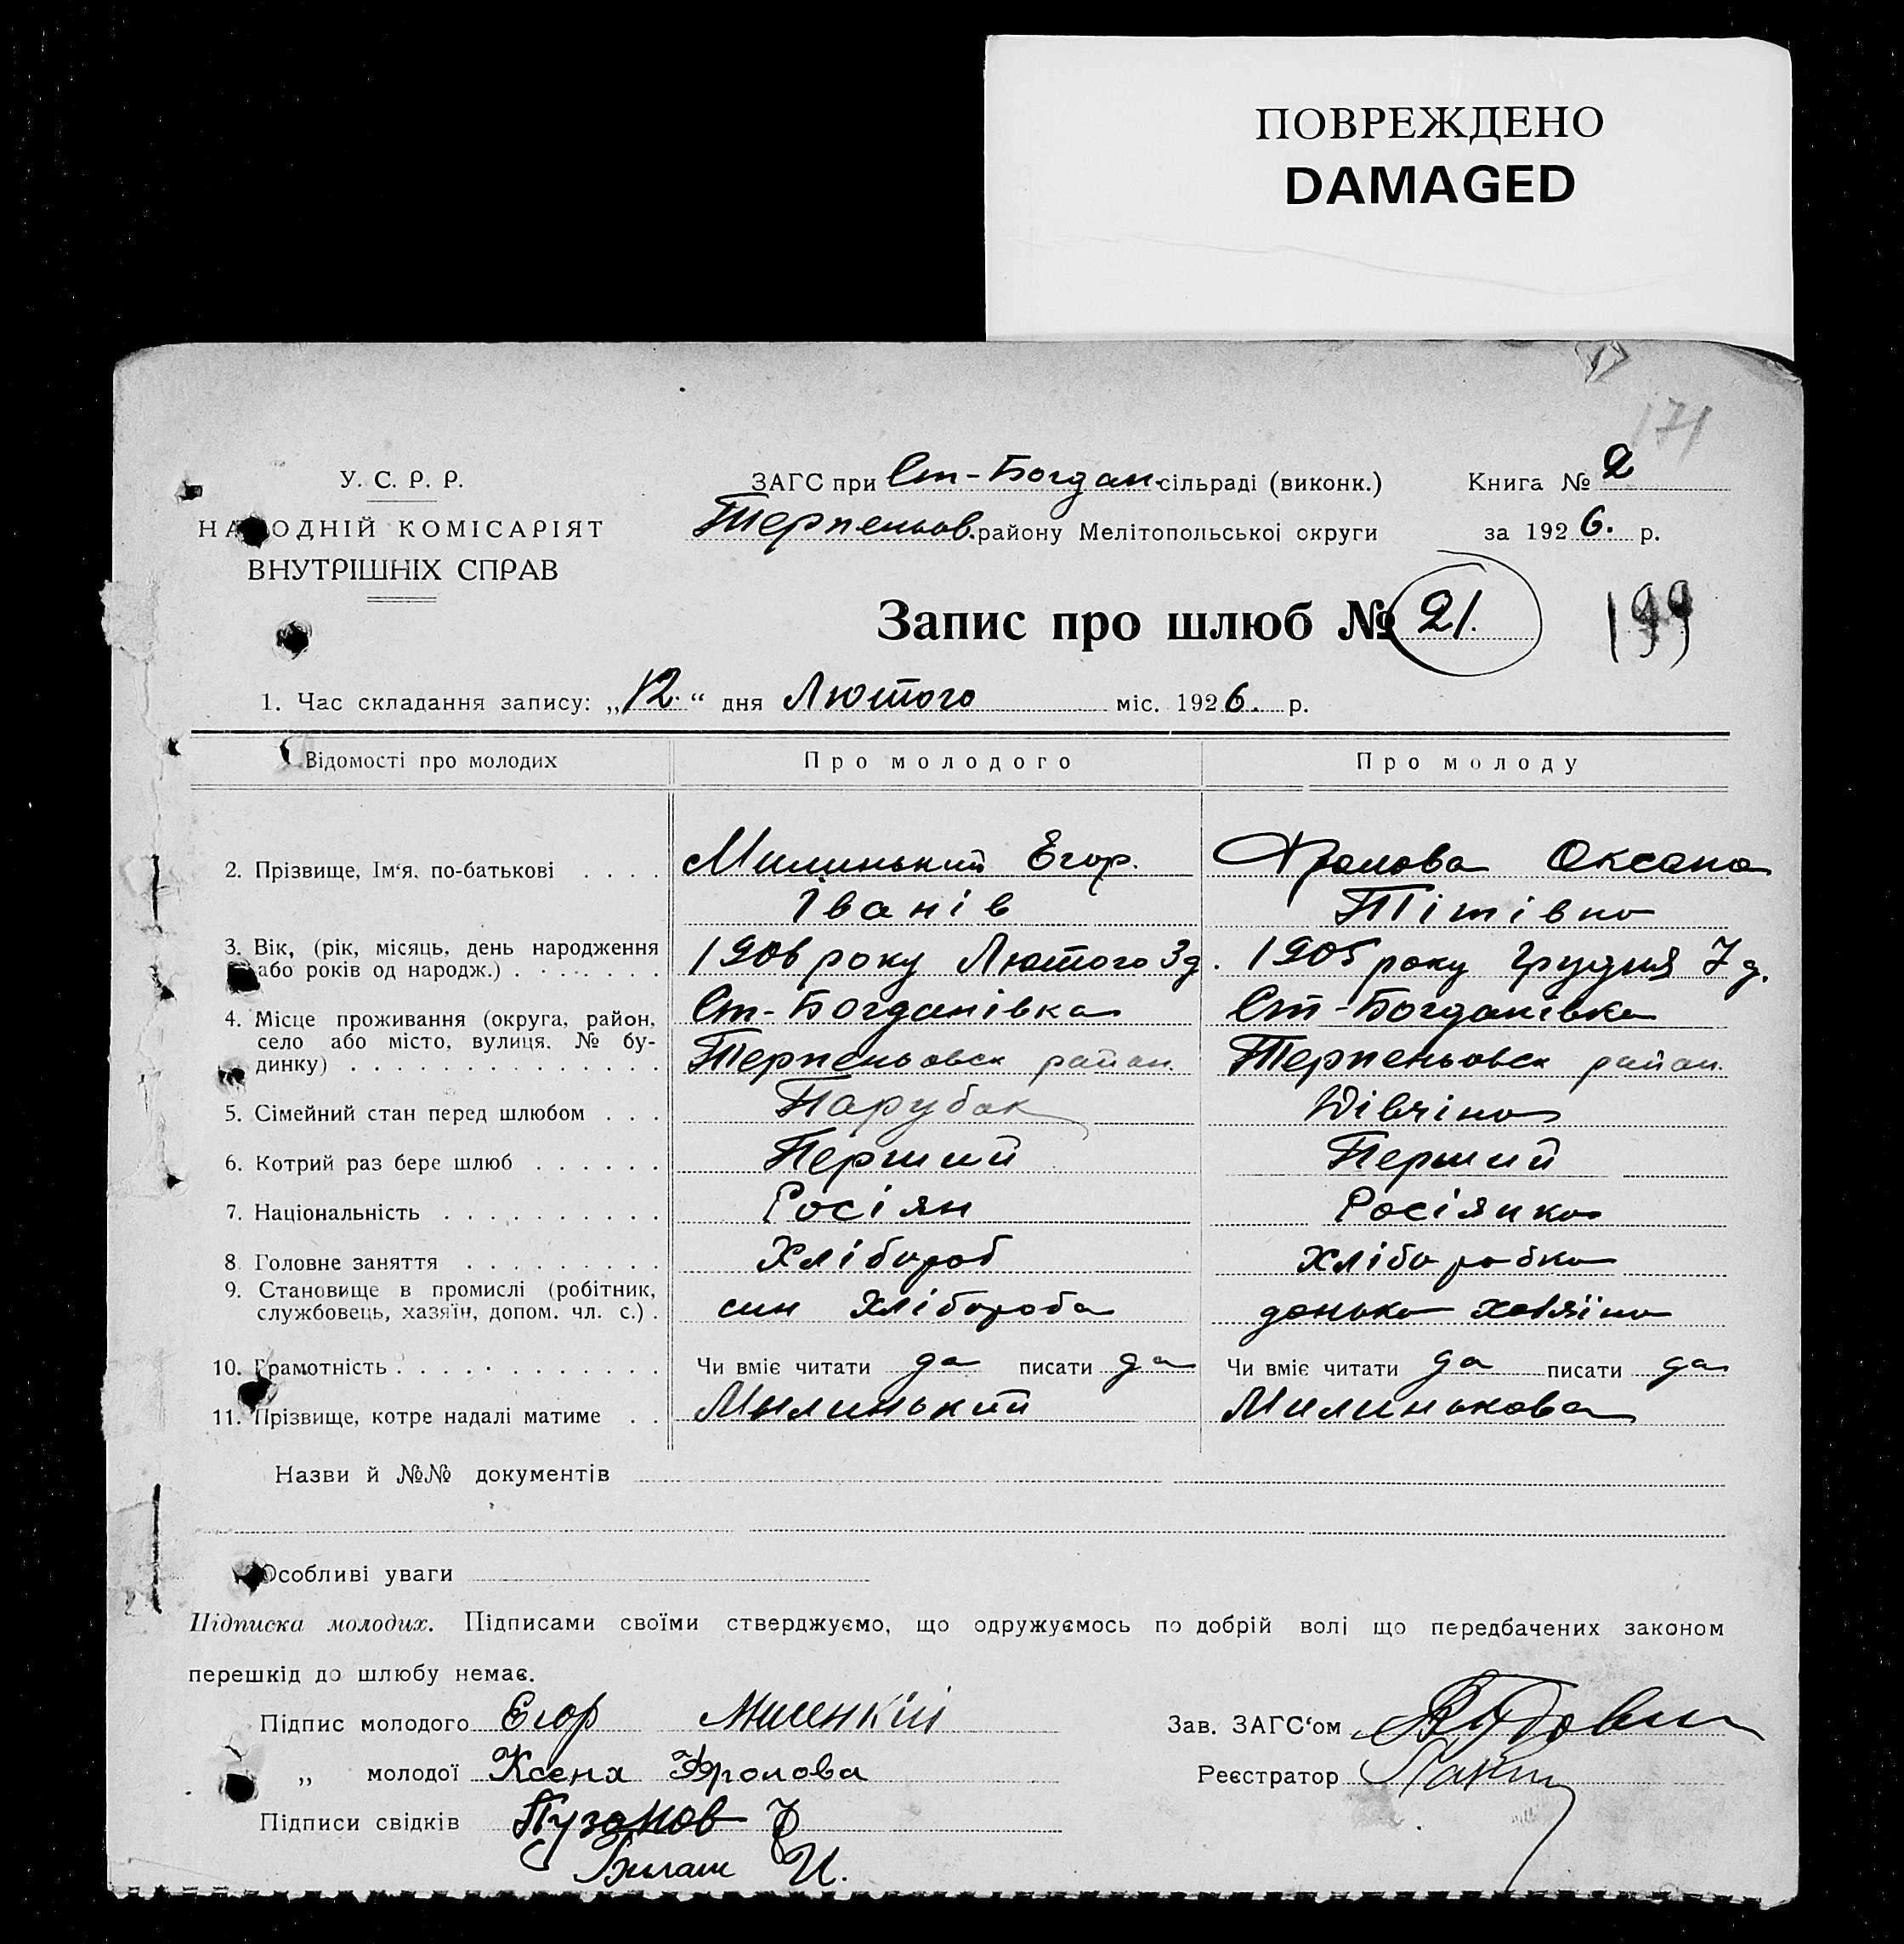 ПОВРЕЖДЕНО
DAMAGED
171
У. С. Р. Р.
НАРОДНІЙ КОМІСАРІЯТ
ВНУТРІШНІХ СПРАВ
ЗАГС при Ст-Богдан. сільраді (виконк.)
Терпеньов. району Мелітопольської округи
Книга № 2
за 1926. р.
Запис про шлюб № 21.
199
1. Час складання запису: „12." дня Лютого міс. 1926. р.
Відомості про молодих Про молодого Про молоду
2. Прізвище, Ім'я, по-батькові . . . . Милинький Егор. Фролова Оксана
Іванів Тітівна
3. Вік, (рік, місяць, день народження 1906 року Лютого 3 д. 1905 року Грудня 7 д.
або років од народж.) . . . . . . .
4. Місце проживання (округа, район, Ст-Богданівка Ст-Богданівка
село або місто, вулиця, № бу-
динку) . . . . . . . . . . . . . . Терпеньовск район. Терпеньовск район.
5. Сімейний стан перед шлюбом . . . Парубак Дівчіна
6. Котрий раз бере шлюб . . . . . . Перший Перший
7. Національність . . . . . . . . . . Росіян Росіянка
8. Головне заняття . . . . . . . . . Хлібороб Хліборобка
9. Становище в промислі (робітник,
службовець, хазяїн, допом. чл. с.) . син Хлібороба донька хазяїна
10. Грамотність . . . . . . . . . . . . Чи вміє читати да писати да Чи вміє читати да писати да
11. Прізвище, котре надалі матиме . . Мылинький Милинькова
Назви й №№ документів
Особливі уваги
Підписка молодих. Підписами своїми стверджуємо, що одружуємось по добрій волі що передбачених законом
перешкід до шлюбу немає.
Підпис молодого Егор Миленкій
Зав. ЗАГС'ом
„ молодої Ксеня Фролова
Реєстратор
Підписи свідків Пузанов
Билаш И.